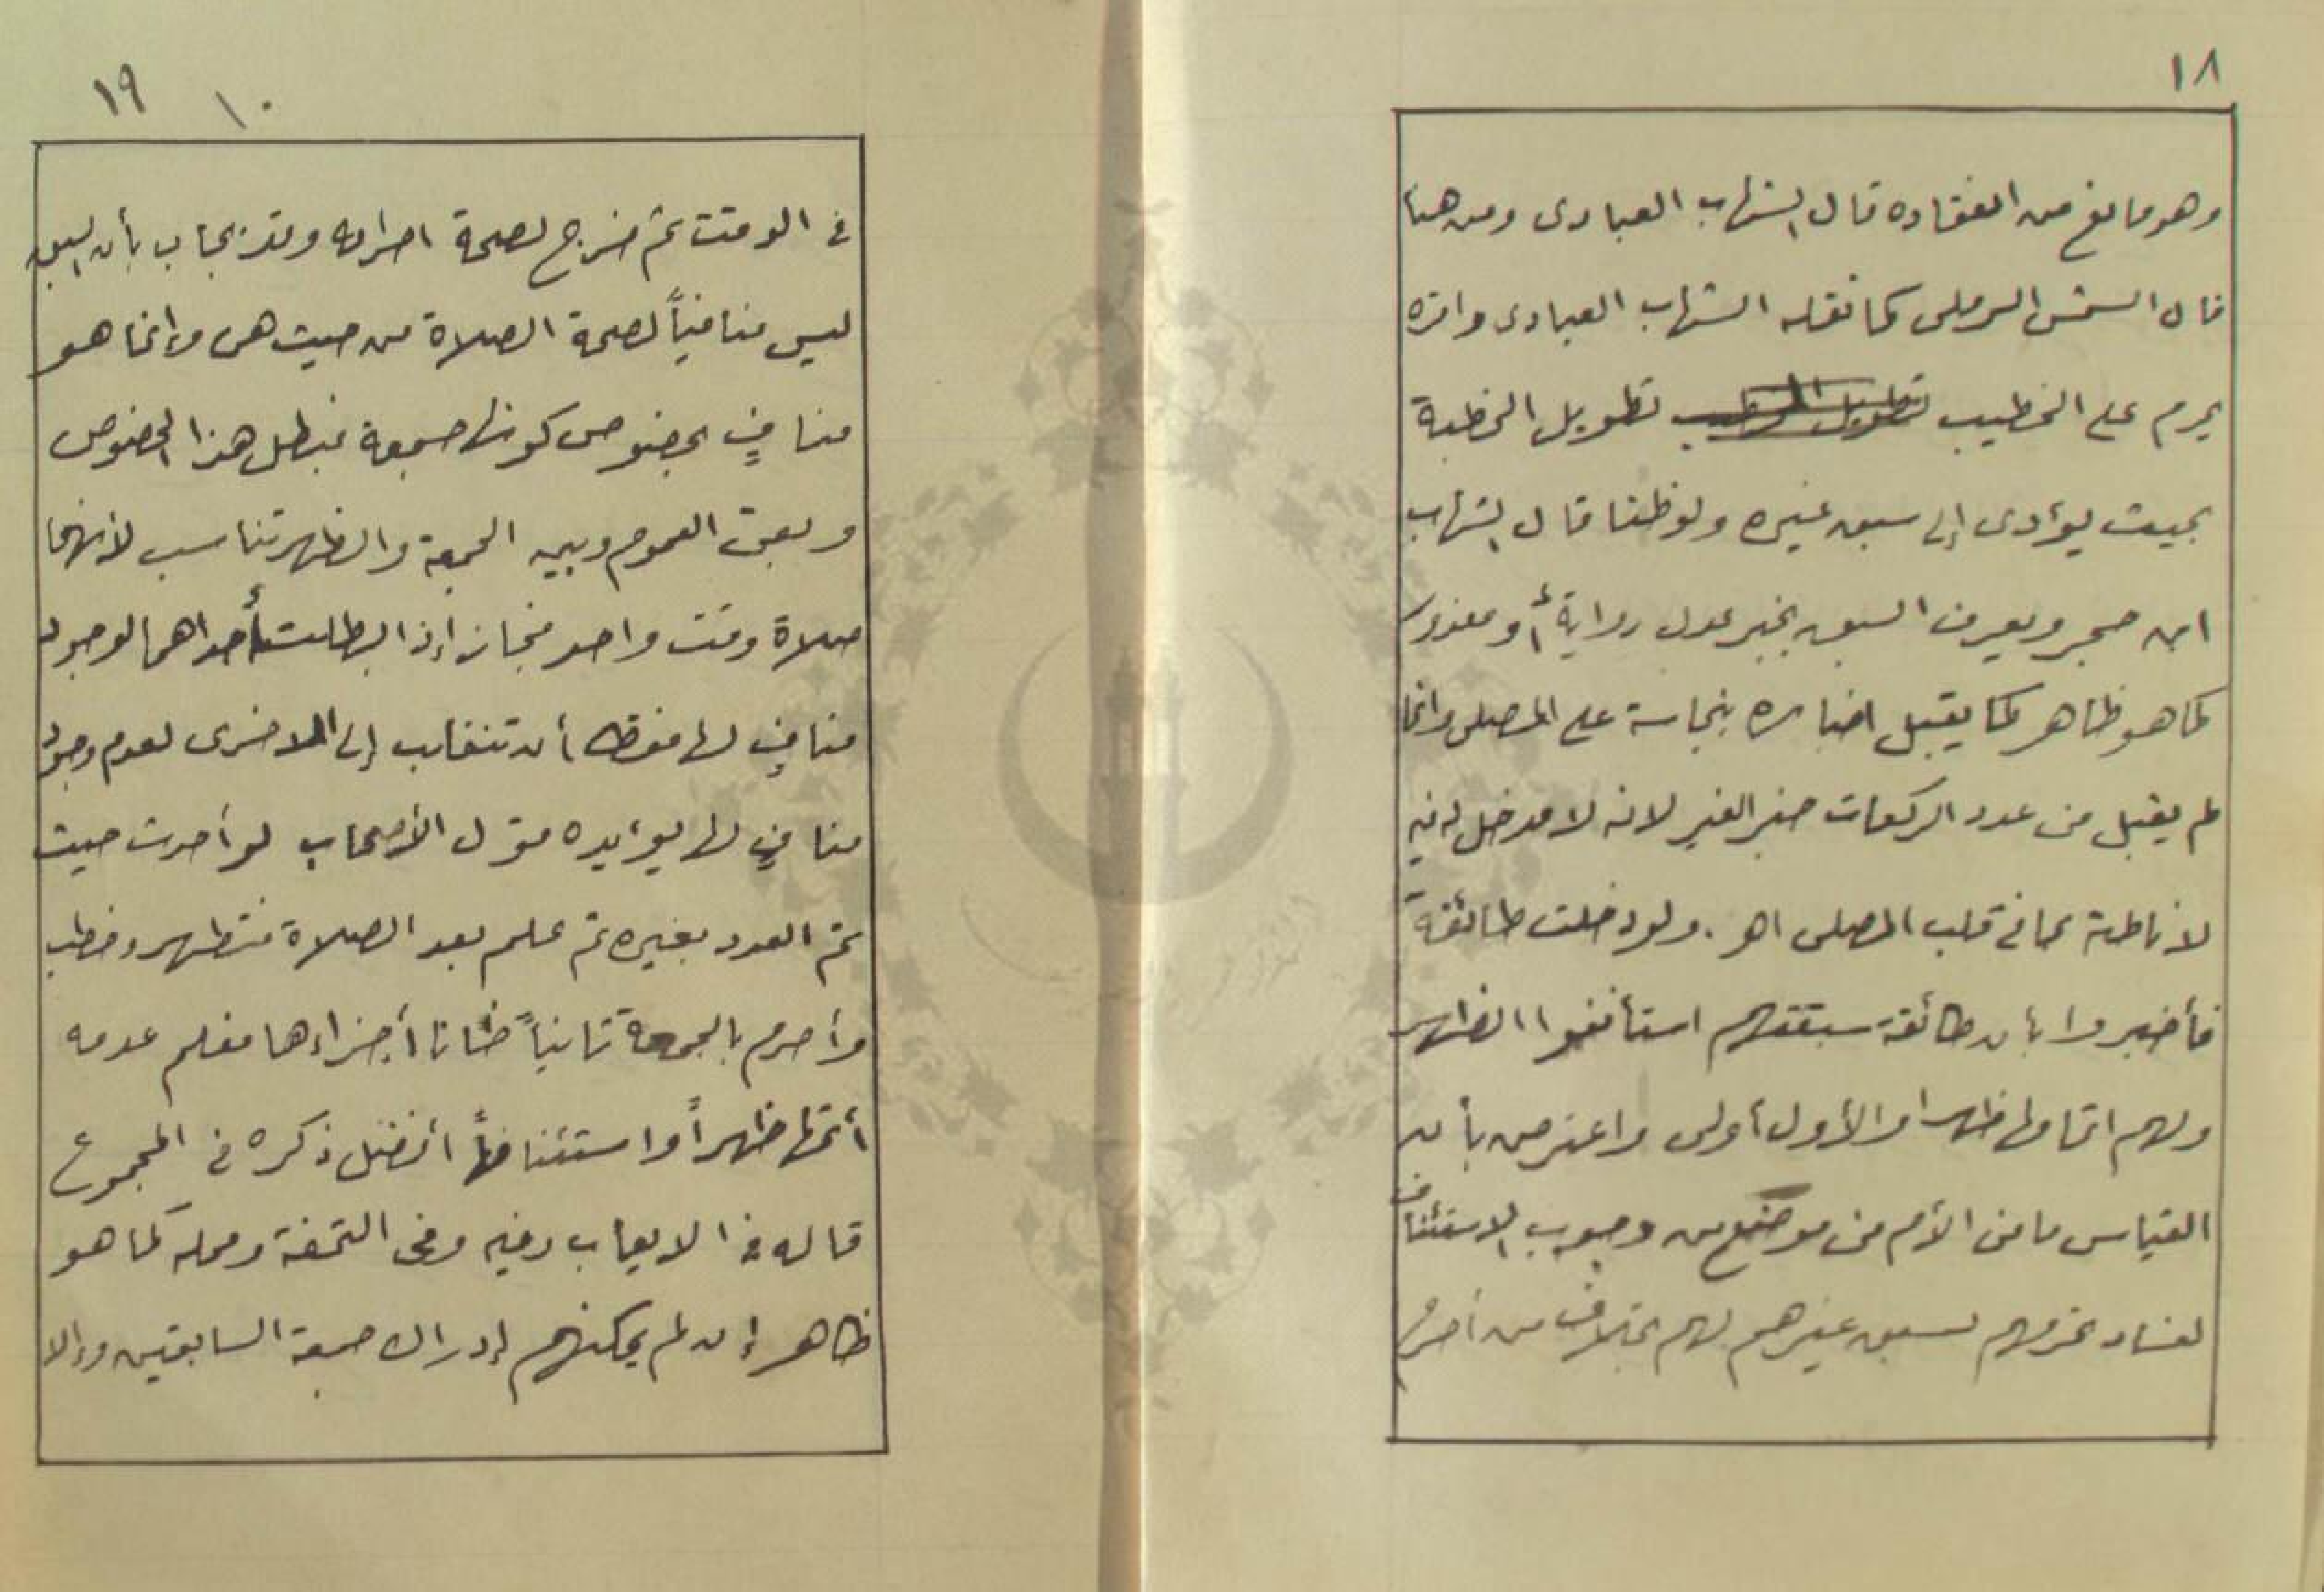 ١٨
وهو مانع من انعقاده قال الشهاب العبادى ومن هنا
قال الشمس الرملى كما نقله الشهاب العبادى واقره
يحرم على الخطيب تطويل الخطبة
بحيث يؤدى إلى سبق غيره ولو ظنا قال الشهاب
ابن حجر ويعرف السبق بخبر عدل رواية أو معذور
كما هو ظاهر كما يقبل اخباره بنجاسة على المصلى وانما
لم يقبل من عدد الركعات خبر الغير لانه لا مدخل له فيه
لاناطته بما فى قلب المصلى اهـ. ولو دخلت طائفة
فأخبروا بان طائفة سبقتهم استأنفوا الظهر
ولهم اتمامها ظهرا والأول أولى واعترض بأن
القياس ما فى الأم من موضع من وجوب الاستئناف
لفساد تحرمهم لسبق غيرهم لهم بخلاف من أحرم
١٩ ١٠
فى الوقت ثم خرج لصحة احرامه وقد يجاب بأن السبق
ليس منافياً لصحة الصلاة من حيث هى وانما هو
منافٍ بخصوص كونها جمعة فبطل هذا الخصوص
وبقى العموم وبين الجمعة والظهر تناسب لأنهما
صلاة وقت واحد فجاز إذا بطلت أحداهما لوجود
منافٍ لها فقط أن تنقلب إلى الاخرى لعدم وجود
منافٍ لها يؤيده قول الأصحاب لو أحدث حيث
تم العدد بغيره ثم علم بعد الصلاة فتطهر وخطب
وأحرم بالجمعة ثانياً ظانا أجزاءها فعلم عدمه
أتمها ظهراً واستئنافهاً أفضل ذكره فى المجموع
قاله فى الايعاب وفيه وفى التحفة ومحله كما هو
ظاهر إن لم يمكنهم إدراك جمعة السابقين وإلا